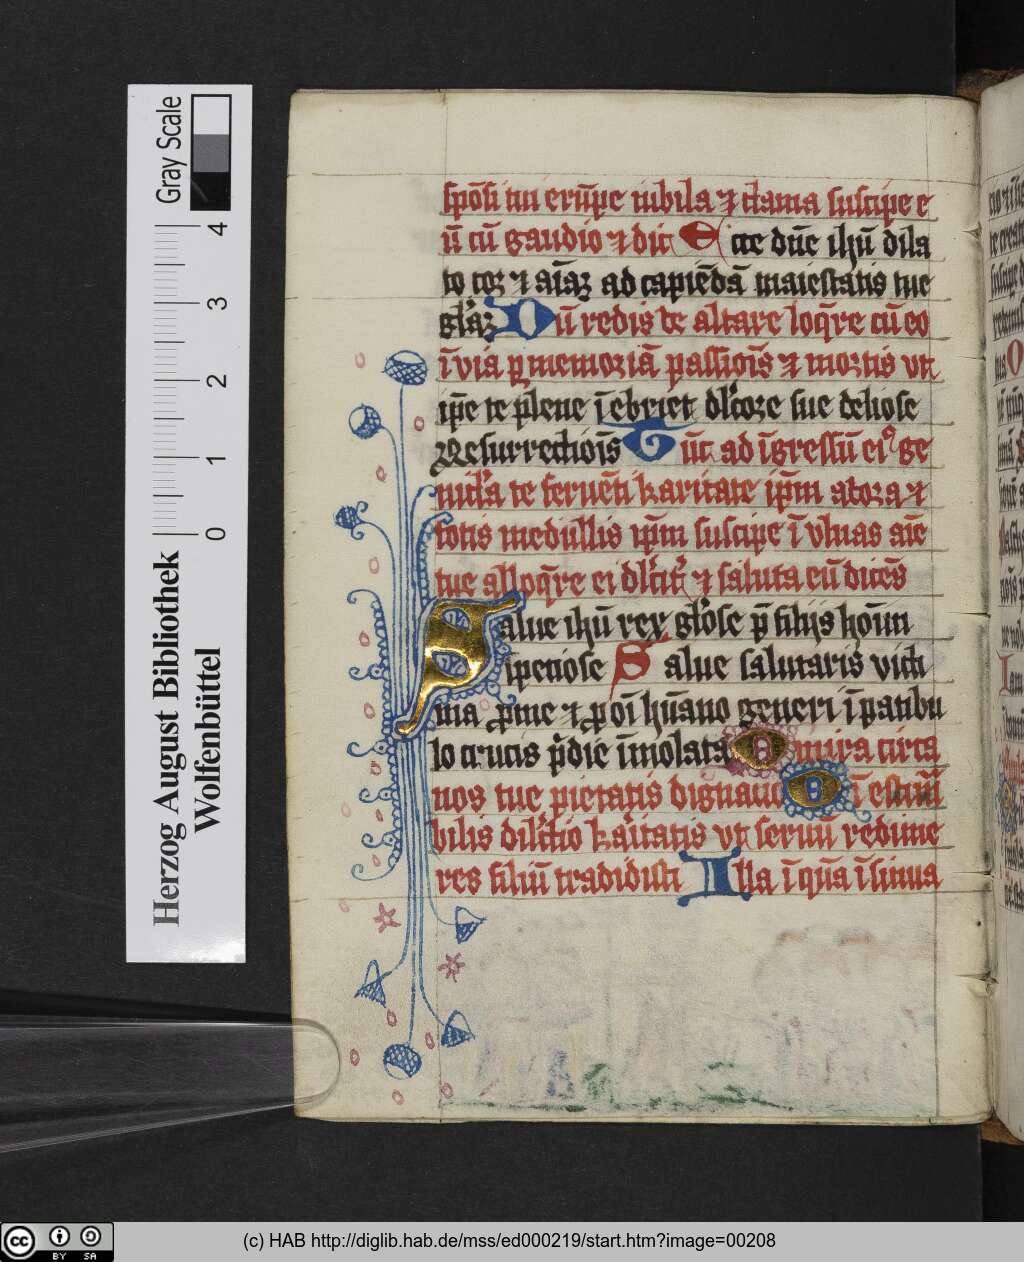 Gray Scale
4
3
2
1
0
Herzog August Bibliothek
Wolfenbüttel
spōsi tui erūpe iubila ⁊ clama suscipe e
ū cū gaudio ⁊ dic Ecce dn̄e ihū dila
to cor ⁊ aīaz ad capiēdā maiestatis tue
gl'az Dū redis de altare loq̄re cū eo
ī via ꝑ memoriā passiōis ⁊ mortis vt
ip̄e te plene īebriet dl'core sue delicose
Resurrectiōis Tūc ad īgressū eiꝰ ge
nicl'a te feruēti karitate ip̄m adora ⁊
totis medullis ip̄m suscipe ī vlnas aīe
tue alloq̄re ei dl'cit' ⁊ saluta eū dicēs
Salue ihū rex gl'ose p̄ filijs hoīm
speciose Salue salutaris victi
ma ꝓ me ⁊ ꝓ oī hūano generi ī patibu
lo crucis p'die īmolata A mira circa
nos tue pietatis dignatio B ī estima
bilis dil'ctio karitatis vt seruū redime
res filiū tradidisti Illa ī qua īsinua
(c) HAB http://diglib.hab.de/mss/ed000219/start.htm?image=00208
cc BY SA